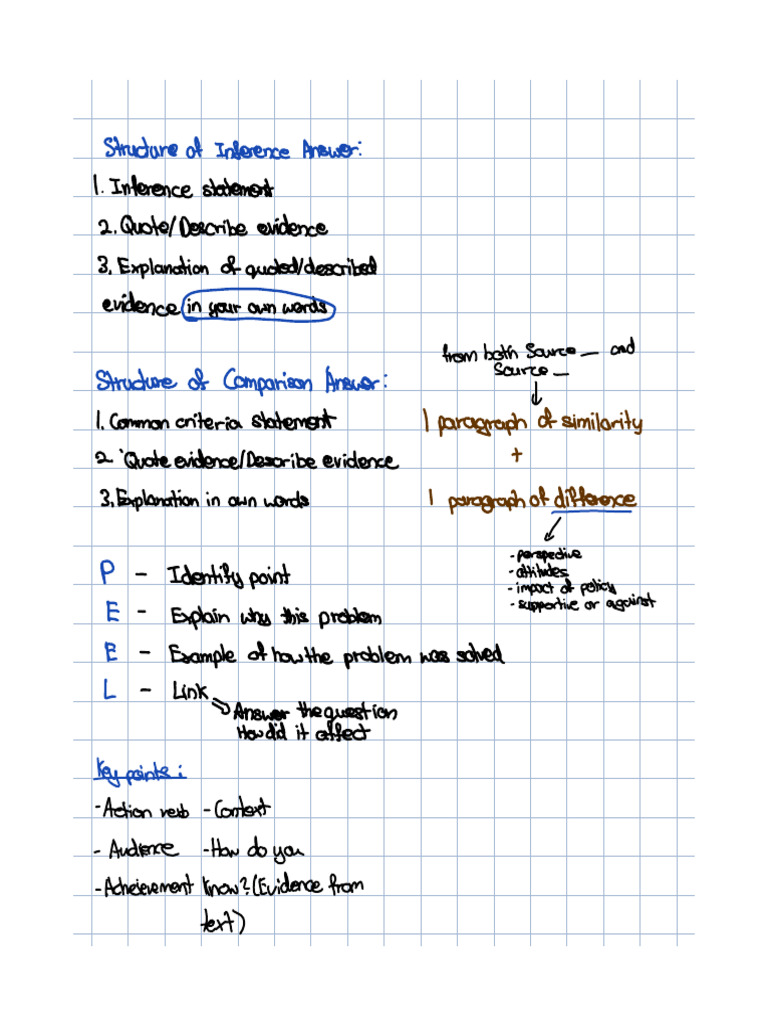 Structure of Inference Answer:
1. Inference statement
2. Quote/Describe evidence
3. Explanation of quoted/described
evidence in your own words
from both Source __ and
Source __
Structure of Comparison Answer:
1. Common criteria statement
2. Quote evidence/Describe evidence
3. Explanation in own words
1 paragraph of similarity
+
1 paragraph of difference
- perspective
- attitudes
- impact of policy
- supportive or against
P - Identify point
E - Explain why this problem
E - Example of how the problem was solved
L - Link
Answer the question
How did it affect
Key points:
- Action verb - Context
- Audience - How do you
- Acheievement know? (Evidence from
text)